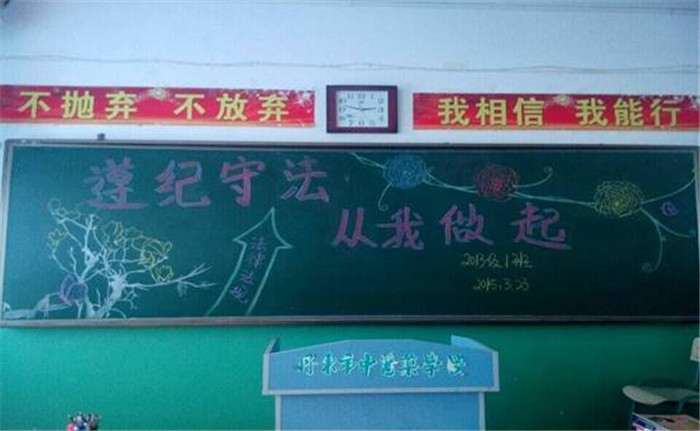 不抛弃 不放弃
我相信 我能行
遵纪守法
从我做起
法律法规
2013级1班
2015.3.23